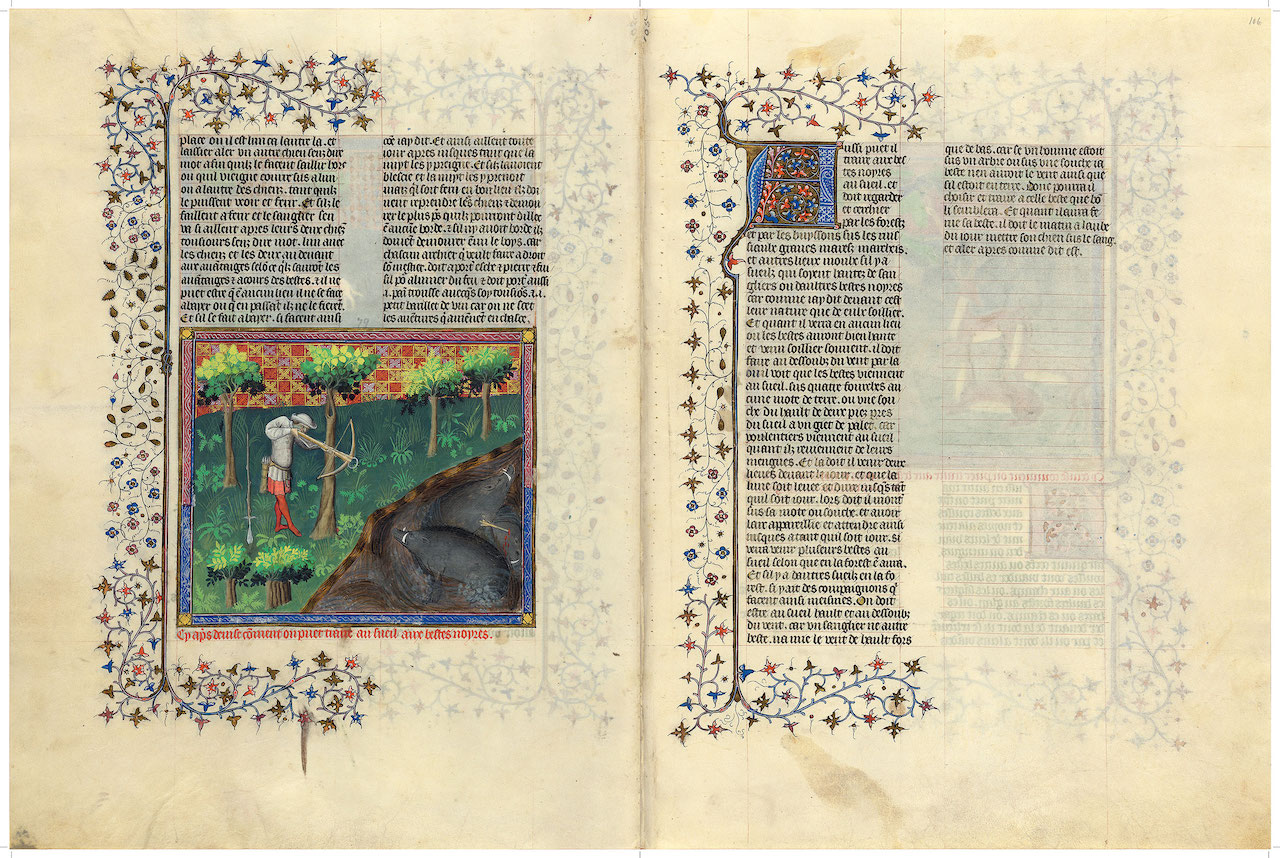 106
place ou il est line a lautre la. et
laissier aler un autre chien senz dire
mot afin quilz le facent saillir hors
ou quil viegne courre sus a lun
ou a lautre des chiens. tant quilz
le puissent veoir et ferir. Et silz le
faillent a ferir et le sanglier sen
va si aillent apres leurs deux chiez
tousiours senz dire mot. lun avec
les chiens et les deux au devant
aux avātages selō ce q̄lz sauront les
avātages et acours des bestes. et il ne
puet estre q̄ en aucun lieu il ne se face
abayer ou q̄ en passāt ilz ne le fierēt.
Et sil se fait abayer. si facent ainsi
cōe iay dit. Et ainsi aillent toute
iour apres iusques tant que la
nuyt les y preigne. Et silz lavoient
blescie et la nuyt les y prenoit
mais q̄l soit feru en bon lieu ilz doi
vent reprendre les chiens et demou
rer le plus p̄s quilz pourront dillec
ē aucūe borde. et sil ny avoit borde ilz
doivēt demourer ēmi le boys. car
chascun archier q̄ veult faire a droit
sō mestier. doit aporter esche et pierre et fu
sil po² alumer du feu et doit porter aussi
.i. pain troussé avecq̄s soy tousiours. et .i.
petit barillet de vin car on ne scet
les avētures q̄ aviēnēt en chasse.
Cy apr̄s devise cōment on puet traire au sueil aux bestes noyres.
Aussi puet il
traire aux bes
tes noyres
au sueil. et
doit regarder
et cerchier
par les forestz
et par les buyssons sus les ruis
seaulx granz mares. marchis.
et autres lieux moulx sil y a
sueilz qui soyent hantez de san
gliers ou daultres bestes noyres
car comme iay dit devant cest
leur nature que de eulx soullier.
Et quant il verra en aucun lieu
ou les bestes auront bien hante
et venu soillier souvent. il doit
faire au dessoubz du vent par la
ou il voit que les bestes viennent
au sueil. sus quatre fourches au
cune mote de terre. ou une sou
che du hault de deux piez pres
du sueil a un giet de palet. car
voulentiers viennent au sueil
quant ilz reviennent de leurs
mengues. Et la doit il venir deux
lieues devant le iour. et que la
lune soit levee et durer iusq̄s tāt
quil soit iour. lors doit il mont²
sus sa mote ou souche. et avoir
larc appareillie et attendre ainsi
iusques a tant quil soit iour. si
verra venir pluseurs bestes au
sueil selon que en la forest ē aura.
Et sil y a dautres sueilz en la fo
rest. si y ait des compaignons q̄
facent ainsi meismes. On doit
estre au sueil hault et au dessoubz
du vent. car un sanglier ne autre
beste. na mie le vent de hault fors
que de bas. car se un homme estoit
sus un arbre ou sus une souche ia
beste nen auroit le vent ainsi que
sil estoit en terre. donc pourra il
choisir et traire a celle beste que bō
li semblera. Et quant il aura fe
rue sa beste. il doit le matin a laube
du iour mettre son chien sus le sang.
et aler apres comme dit est.